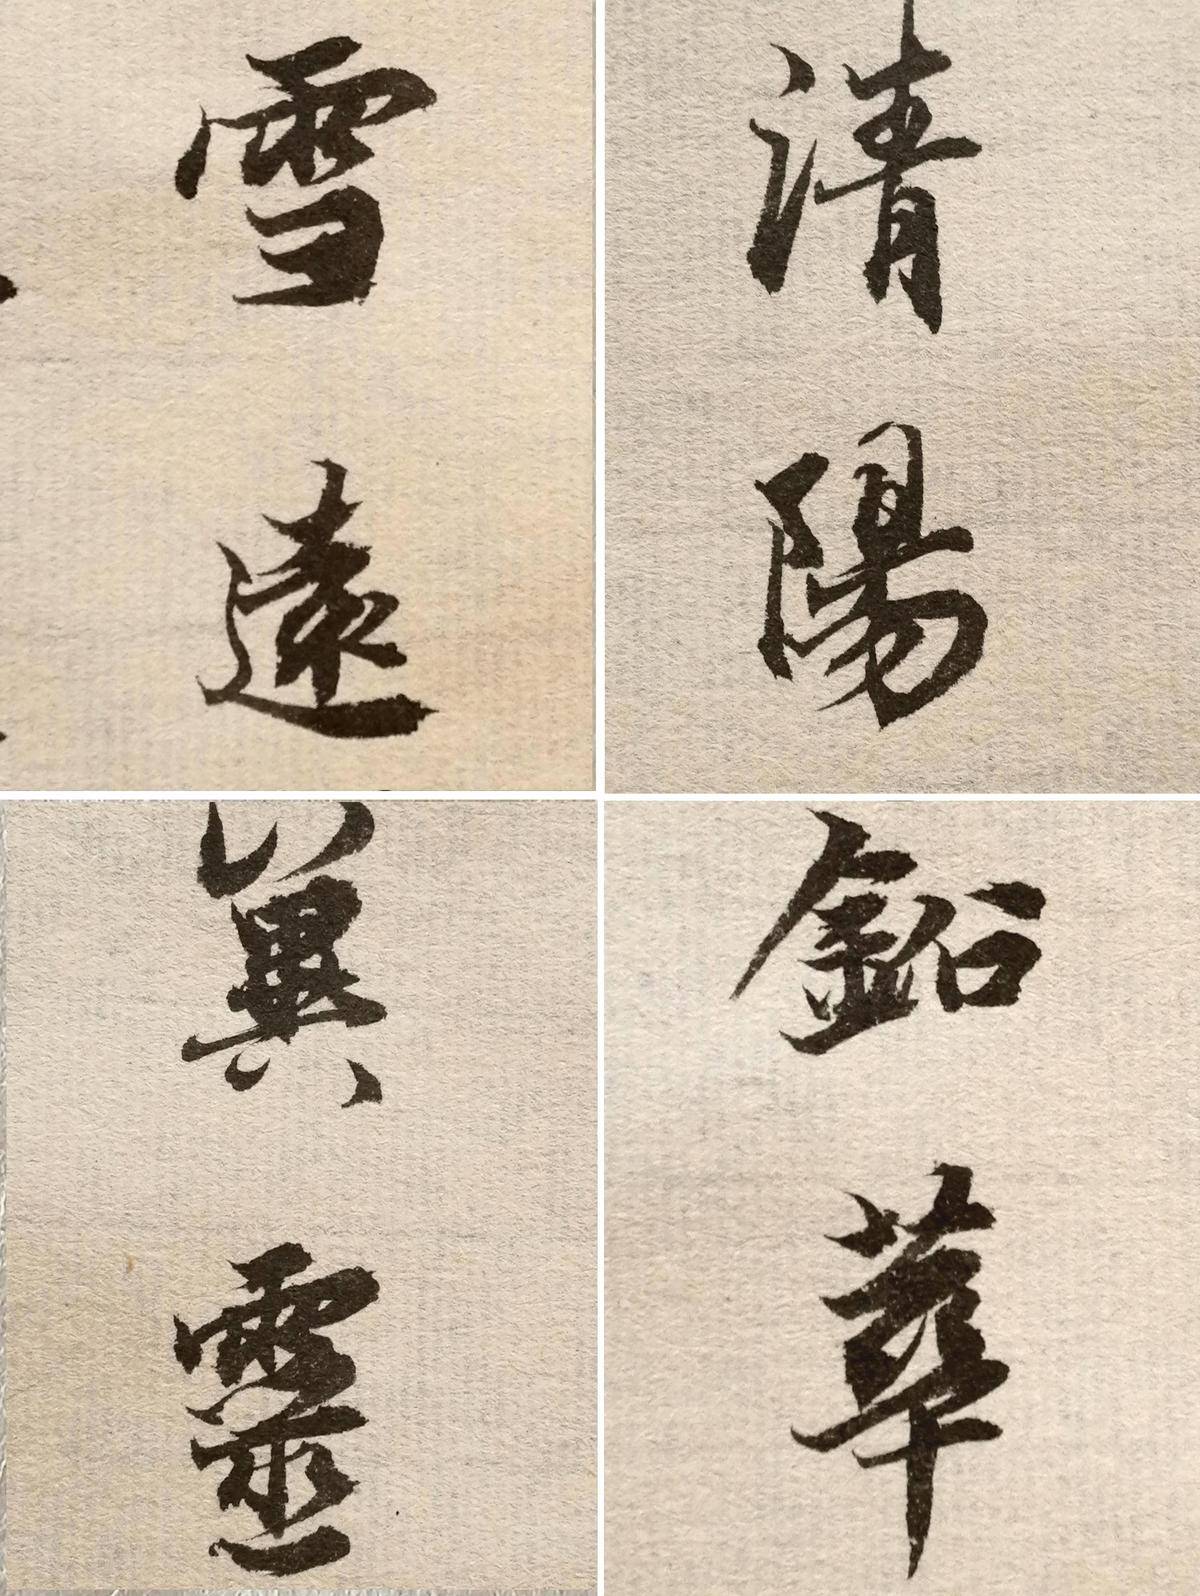 雪遠
清陽
翼靈
鉛華